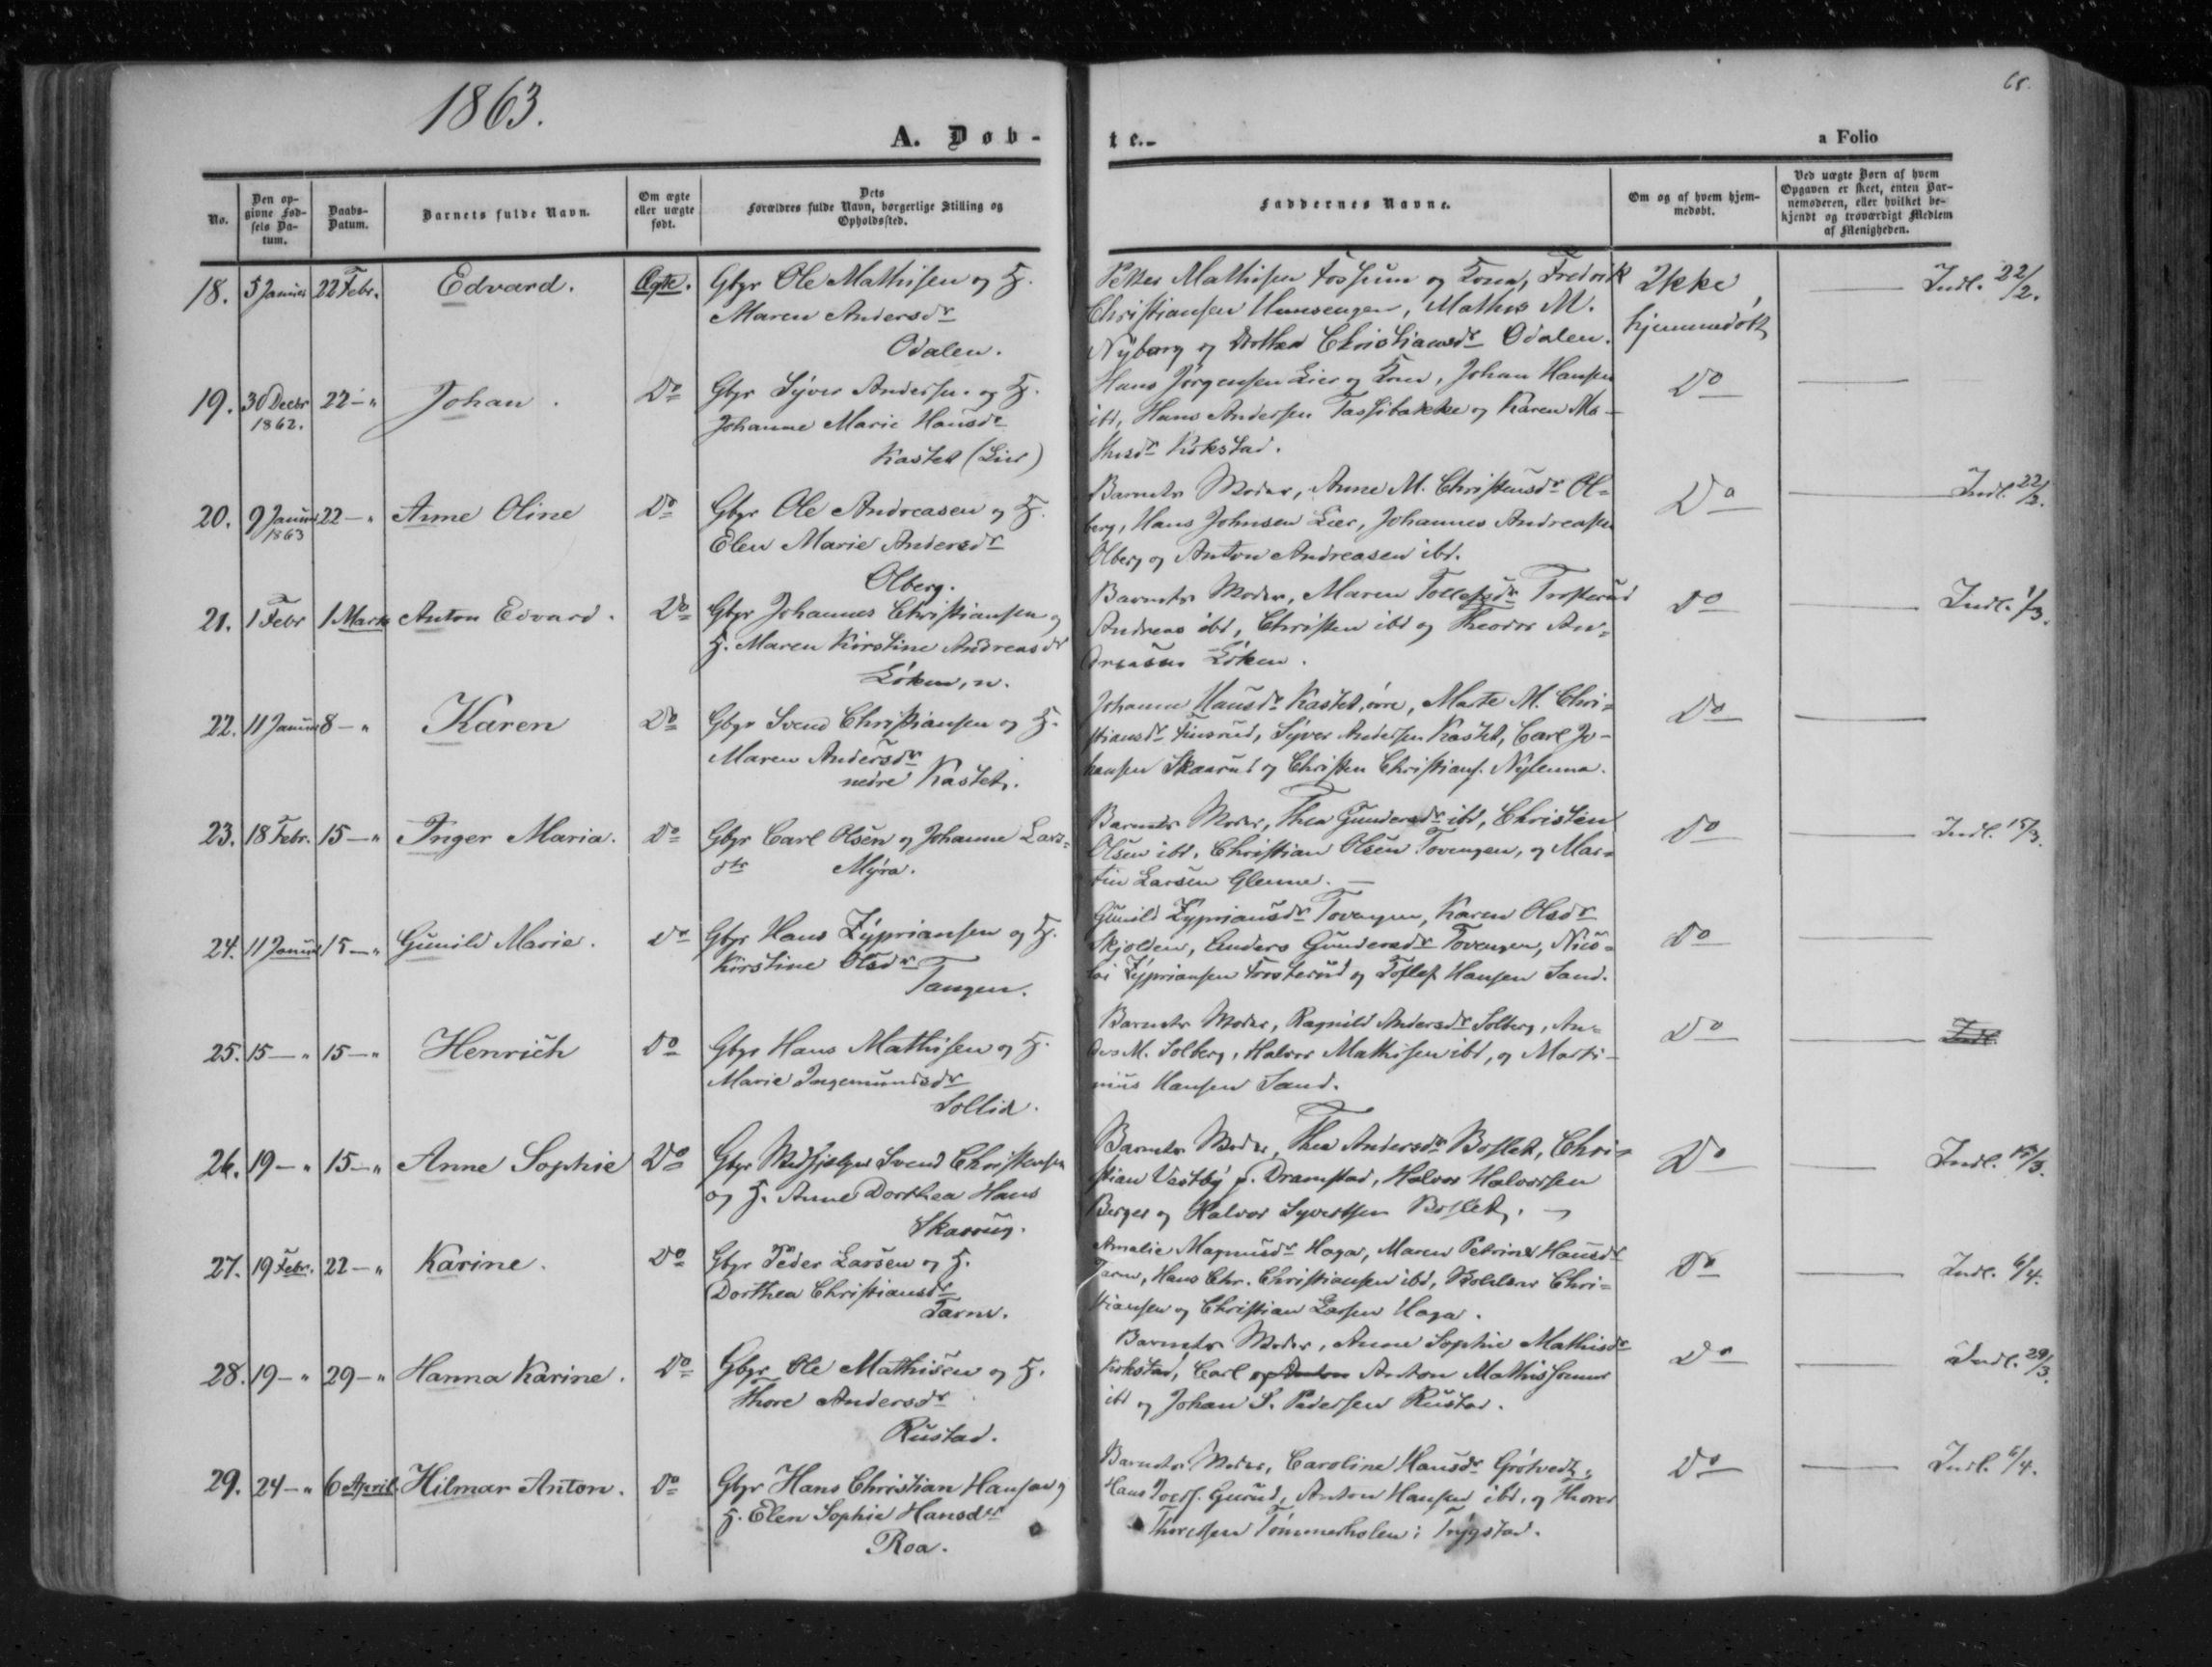 1863.
68.
A. Døb-
te.-
a Folio
No.
Den op-
givne Fød-
sels Da-
tum.
Daabs-
Datum.
Barnets fulde Navn.
Om ægte
eller uægte
født.
Dets
Forældres fulde Navn, borgerlige Stilling og
Opholdssted.
Faddernes Navne.
Om og af hvem hjem-
medøbt.
Ved uægte Børn af hvem
Opgaven er skeet, enten Bar-
nemoderen, eller hvilket be-
kjendt og troværdigt Medlem
af Menigheden.
18. 5 Januar 22 Febr. Edvard. Ægte. Gbgr Ole Mathisen og H.
Maren Andersdr
Odalen.
Petter Mathisen Fossum og Kona, Fredrik
Christiansen, Mathis M.
Nyborg og Dorthea Christiansdr Odalen.
Ikke
hjemmedøbt
Indl. 22/2.
19. 30 Decbr 1862. 22 - " Johan. Do Gbgr Syver Andersen og H.
Johanne Marie Hansdr
Kastet (Lier)
Hans Jørgensen Lier og Kona, Johan Hansen
ibd, Hans Andersen Tassibakke og Karen Ma-
thisdr Kirkstad.
Do
20. 9 Januar 1863 22 - " Anne Oline Do Gbgr Ole Andreasen og H.
Elen Marie Andersdr
Olberg.
Barnets Moder, Anne M. Christensdr Ol-
berg, Hans Johnsen Lier, Johannes Andreasen
Olberg og Anton Andreasen ibd.
Do
Indl. 22/2.
21. 1 Febr 1 Marts Anton Edvard. Do Gbgr Johannes Christiansen og
H. Maren Kirstine Andreasdr
Løken, n.
Barnets Moder, Maren Tollefsdr Trosterud
Andreas ibd, Christen ibd og Theodor An-
dreasen Løken.
Do
Indl. 1/3.
22. 11 Januar 8 - " Karen Do Gbgr Svend Christiansen og H.
Maren Andersdr
nedre Kastet.
Johanne Hansdr Kastet, øvre, Marte M. Chri-
stiansdr Finsrud, Syver Andersen Kastet, Carl Jo-
hansen Skaarud og Christen Christians. Nylenna.
Do
23. 18 Febr. 15 - " Inger Maria. Do Gbgr Carl Olsen og Johanne Lars-
dtr Myra.
Barnets Moder, Thea Gundersdr ibd, Christen
Olsen ibd, Christian Olsen Tovengen, og Mar-
tin Larsen Glenne. -
Do
Indl. 15/3.
24. 11 Januar 15 - " Gunild Marie. Do Gbgr Hans Zyprianssen og H.
Kirstine Olsdr
Tangen.
Gunild Zypriansdr Tovengen, Karen Olsdr
Skjolden, Anders Gundersdr Tovengen, Nico-
lai Zypriansen Trosterud og Toflef Hansen Sand.
Do
25. 15 - " 15 - " Henrich Do Gbgr Hans Mathisen og H.
Marie Ingemundsdr
Sollid.
Barnets Moder, Ragnild Andersdr Solberg, An-
ders M. Solberg, Halvor Mathisen ibd, og Marti-
nius Hansen Sand.
Do
Indl.
26. 19 - " 15 - " Anne Sophie Do Gbgr Medhjælper Svend Christensen
og H. Anne Dorthea Hans
Skarrug.
Barnets Moder, Thea Andersdr Boslet, Chri-
stian Vestby p. Dramstad, Halvor Halvorsen
Berger og Halvor Syvertsen Boslet.
Do
Indl. 15/3.
27. 19 Febr. 22 - " Karine. Do Gbgr Peder Larsen og H.
Dorthea Christiansdr
Tarne.
Amalie Magnusdr Haga, Maren Petrine Hansdr
Tarne, Hans Chr. Christiansen ibd, Chri-
stiansen og Christian Larsen Haga.
Do
Indl. 6/4.
28. 19 - " 29 - " Hanna Karine. Do Gbgr Ole Mathisen og H.
Thore Andersdr
Rustad.
Barnets Moder, Anne Sophie Mathisdr
Kirkstad, Carl og Anton Anton Mathissønner
ibd og Johan S. Pedersen Rustad.
Do
Indl. 29/3.
29. 24 - " 6 April Hilmar Anton. Do Gbgr Hans Christian Hansen og
H. Elen Sophie Hansdtr
Roa.
Barnets Moder, Caroline Hansdr Grøtvedt,
Hans Gurud, Anton Hansen ibd, og Thorer
Thoresen Tømmerholen i Trygstad.
Do
Indl. 6/4.